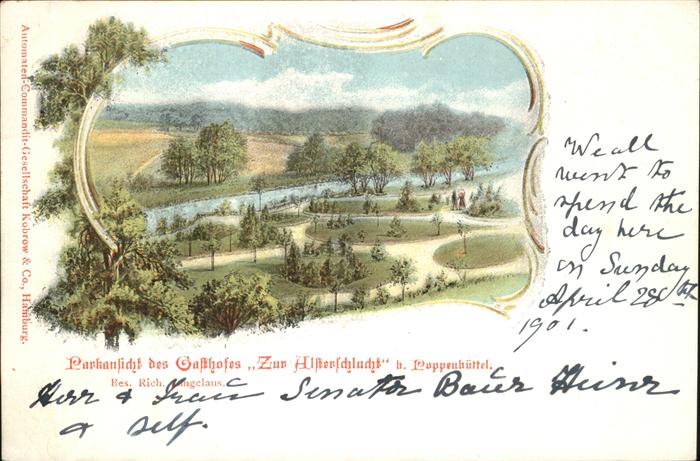 Automaten-Commandit-Gesellschaft Kobrow & Co., Hamburg.
We all
went to
spend the
day here
on Sunday
April 28th
1901.
Parkansicht des Gasthofes „Zur Alsterschlucht" b. Poppenbüttel.
Bes. Rich.
Herr & Frau Senator Bauer
& self.